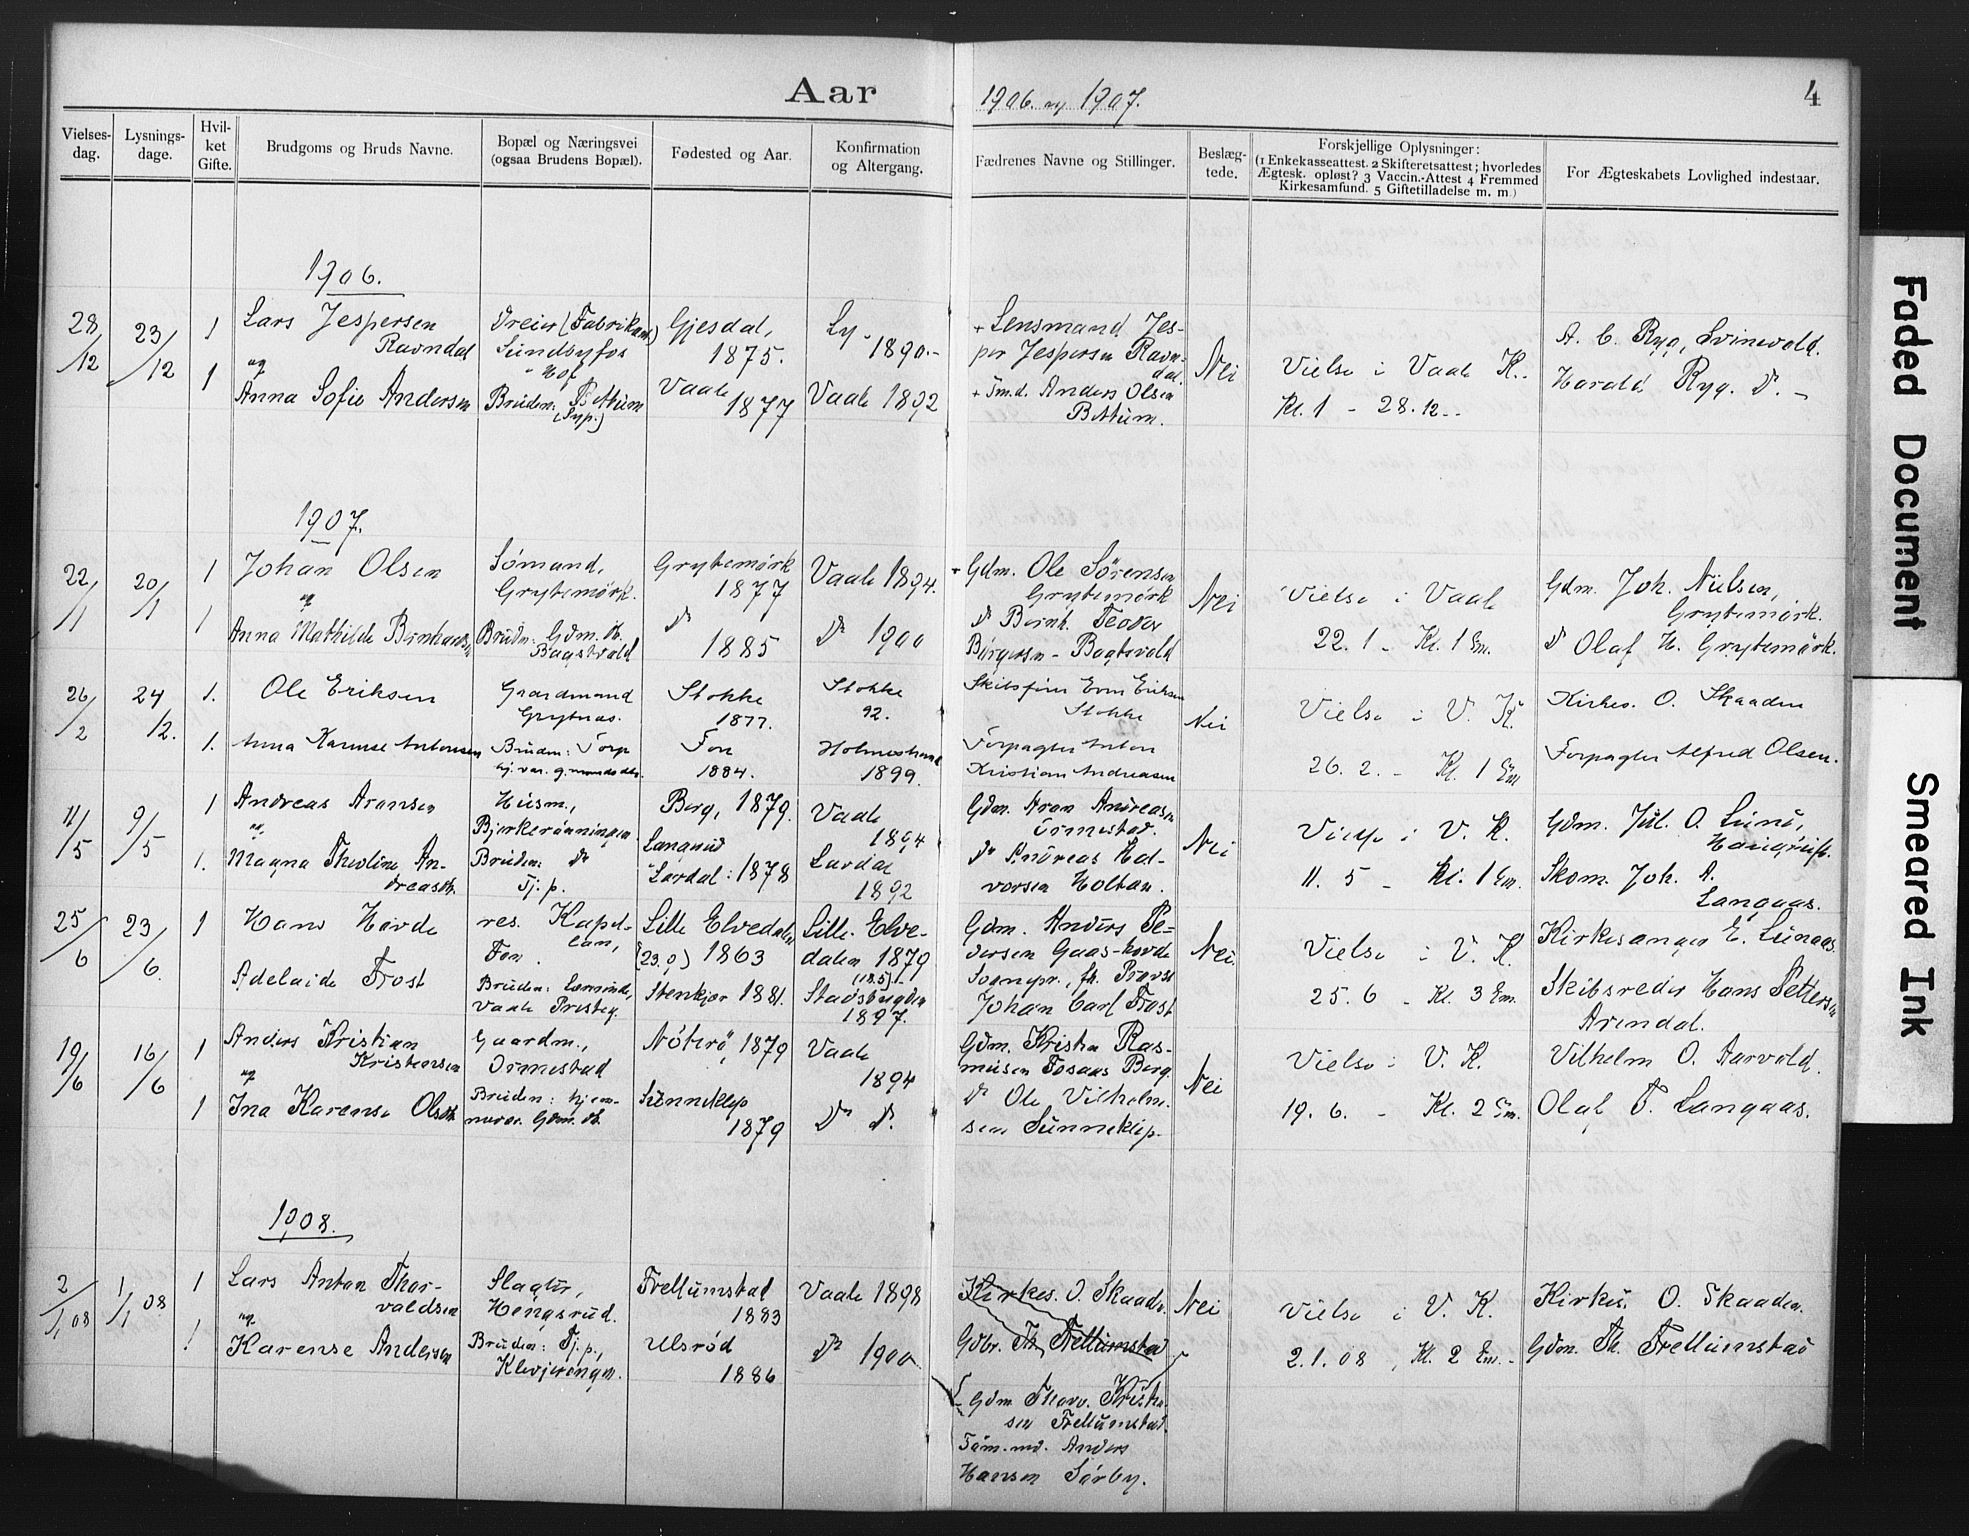 Aar 1906. og 1907. 4
Vielses-dag. Lysnings-dage. Hvilket Gifte. Brudgoms og Bruds Navne. Bopæl og Næringsvei (ogsaa Brudens Bopæl). Fødested og Aar. Konfirmation og Altergang. Fædrenes Navne og Stillinger. Beslægtede. Forskjellige Oplysninger: (1 Enkekasseattest. 2 Skifteretsattest; hvorledes Ægtesk. opløst? 3 Vaccin.-Attest 4 Fremmed Kirkesamfund. 5 Giftetilladelse m. m.) For Ægteskabets Lovlighed indestaar.
1906.
28/12 23/12 1 Lars Jespersen Ravndal
Dreier (Fabrikarb.) Sundbyfos Hof
Gjesdal, 1875.
Ly- 1890.-
+ Lensmand Jesper Jespersen Ravndal.
Nei
Vielse i Vaale K.
A. C. Ryg, Svinevold.
og
1 Anna Sofie Andersen
Bruden: Bettum
Vaale 1877
Vaale 1892
+ Tmd. Anders Olsen Bettum.
Kl. 1 - 28.12.-
Harald Ryg. Do. -
1907.
22/1 20/1 1 Johan Olsen
Sømand, Grytemørk.
Grytemørk 1877
Vaale 1894.
Gdm. Ole Sørensen Grytemørk
Nei
Vielse i Vaale
Gdm. Joh. Nielsen, Grytemørk.
og
1 Anna Mathilde
Bruden: Gdm. db.
Do 1885
Do 1900
Do Bernh. Teodor Børgersen -
22.1 - Kl. 1 Em.
Do Olaf H. Grytemørk.
26/2 24/2. 1. Ole Eriksen
Gaardmand Grytnes.
Stokke 1877.
Stokke 92.
Even Eriksen Stokke
Nei
Vielse i V. K.
Kirkes. O. Skaaden
1. Anna Karense Antonsen
Bruden: Torp
Fon 1884.
Holmestrand 1899.
Forpagter Anton Kristian Andreasen
26.2. - Kl. 1 Em
Forpagter Alfred Olsen.
11/5 9/5 1 Andreas Aronsen
Husm., Bjerkerønningen
Berg, 1879.
Vaale 1894
Gdm. Aron Andreasen Ormestad.
Nei
Vielse i V. K.
Gdm. Jul. O. Lund,
og
1. Magna Theoline Andreasdtr.
Bruden: Do Tj. p.
Langrud Lardal: 1878
Lardal 1892
Do Andreas Halvorsen Holtan.
11. 5 - Kl. 1 Em.
Skom. Joh. A. Langaas.
25/6 23/6. 1 Hans Hovde
res. Kapellan, Fon.
Lille Elvedalen (23.9) 1863
Lille-Elvedalen 1879
Gdm. Anders Pedersen Gaas-hovde
Nei.
Vielse i V. K.
Kirkesanger E. Lunaas
Adelaide Frost
Bruden: Vaale Presteg.
Stenkjær 1881.
Stadsbygden 1897.
Sognepr., fh. Provst Johan Carl Frost
25.6 - Kl. 3 Em.
Skibsreder Hans Pettersen Arendal.
19/6 16/6 1 Anders Kristian Kristensen
Gaardm., Ormestad
Nøterø, 1879
Vaale 1894
Gdm. Kristen Rasmussen Fosaas Berg.
Nei
Vielse i V. K.
Vilhelm O. Aarvold.
og
1 Ina Karense Olsdtr.
Bruden: hjemmevær. Gdm. db.
Sunneklep 1879
Do Do.
Do Ole Vilhelmsen Sunneklep.
19.6. - Kl. 2 Em.
Olaf T. Langaas.
1908.
2/1 08 1/1 08 1 Lars Anton Thorvaldsen
Slagter, Hengsrud.
Frellumstad 1883
Vaale 1898
Kirkes. O. Skaaden.
Nei
Vielse i V. K.
Kirkes. O. Skaaden.
og
1 Karense Andersen
Bruden: Tj. p.,
Ulsrød 1886
Do 1900
Gdbr. Th. Frellumstad
2.1.08, Kl. 2 Em. -
Gdm. Th. Frellumstad
Gdm Thorv. Kristensen Frellumstad.
Tøm.md. Anders
Hansen Sørby.
Faded Document
Smeared Ink